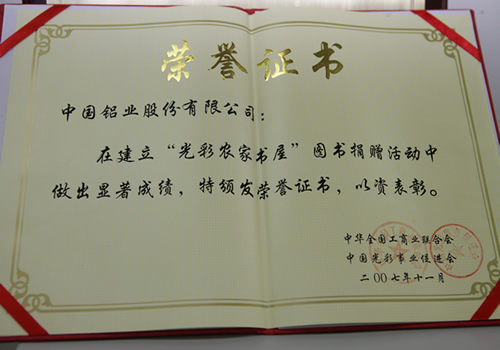 荣誉证书
中国铝业股份有限公司：
在建立“光彩农家书屋”图书捐赠活动中
做出显著成绩，特颁发荣誉证书，以资表彰。
中华全国工商业联合会
中国光彩事业促进会
二〇〇七年十一月